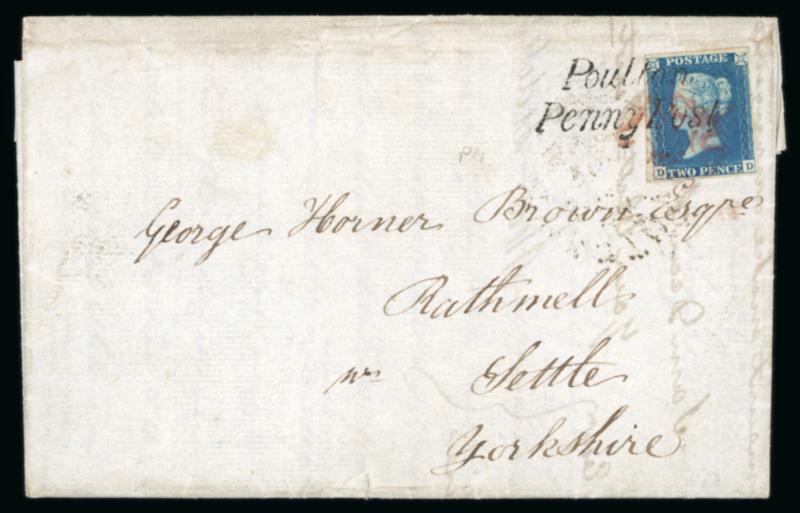 Poulton
Penny Post
POSTAGE
D TWO PENCE D
George Horner Brown Esqre
Rathmell
nr Settle
Yorkshire